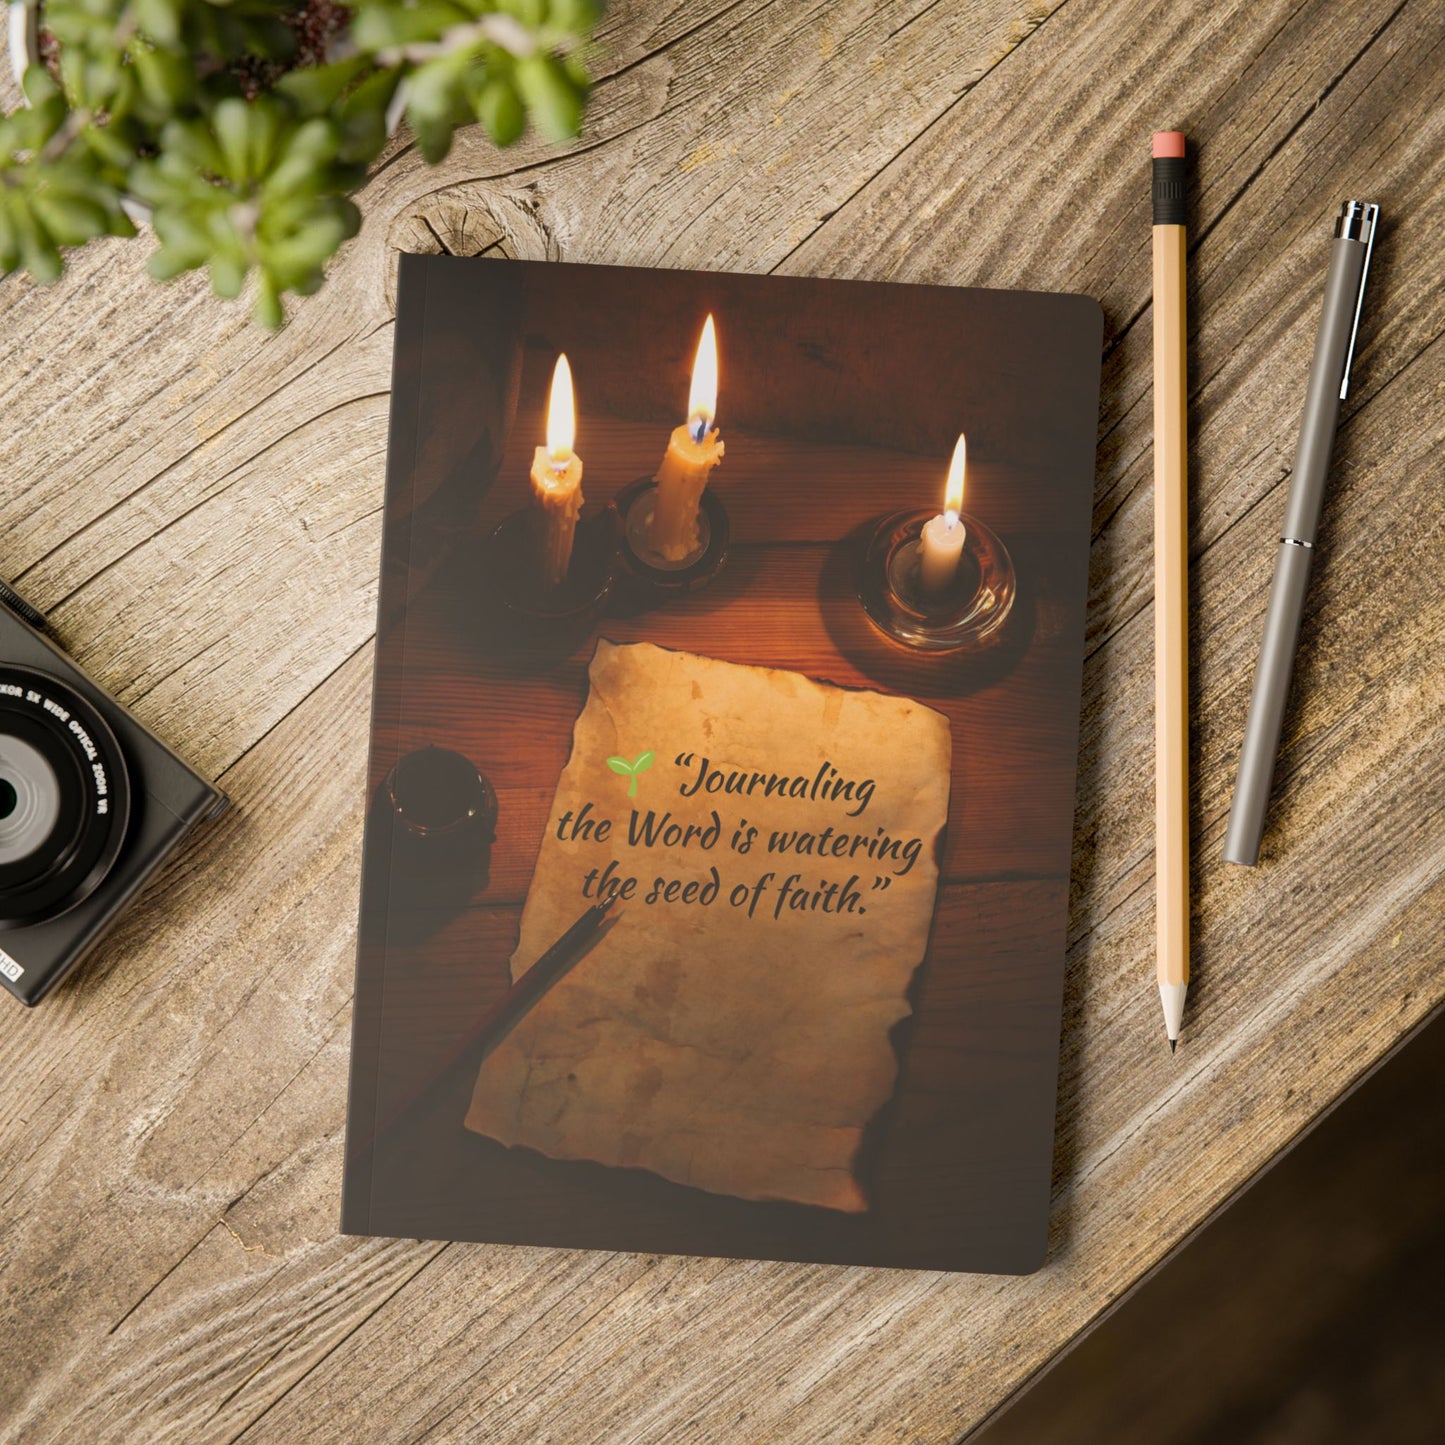 🌱 “Journaling
the Word is watering
the seed of faith.”
5X WIDE OPTICAL ZOOM VR
HD